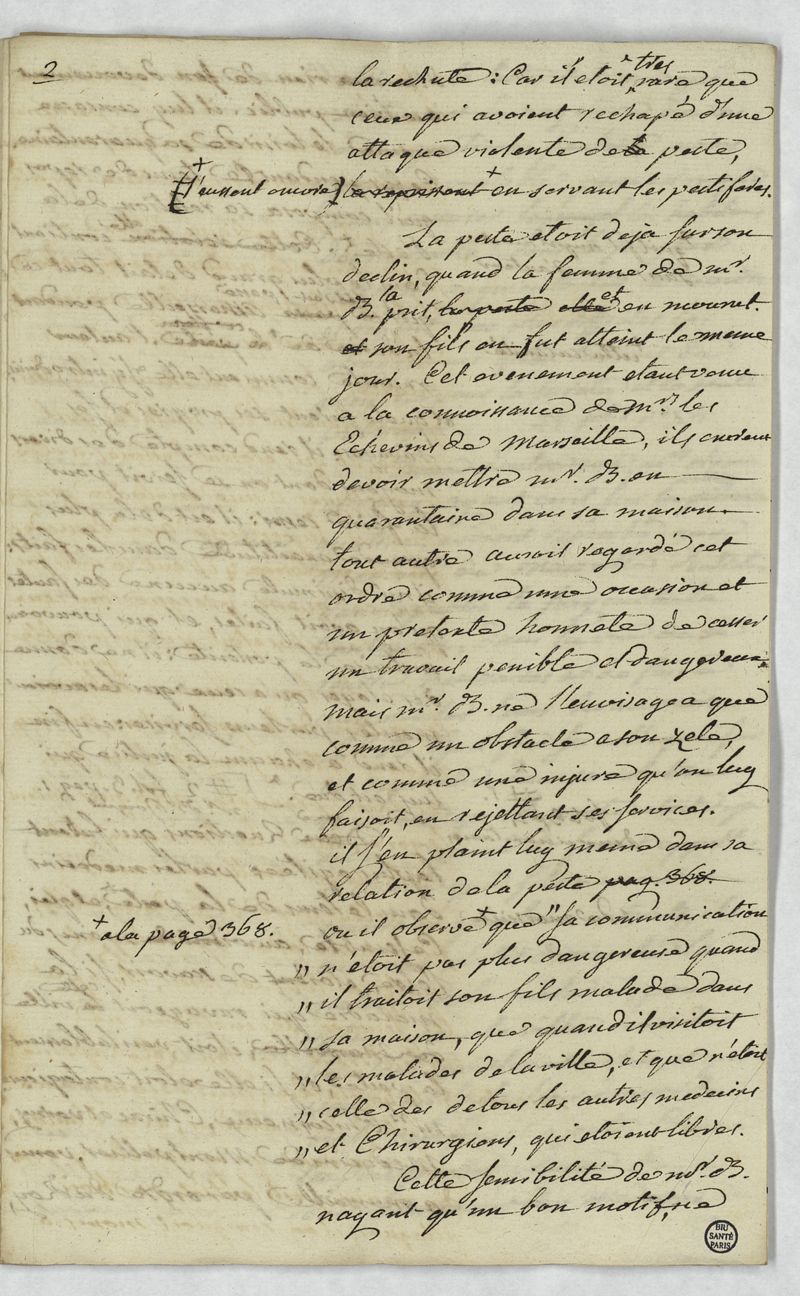 2
la rechute : Car il etoit tres rare que
ceux qui avoient rechapé d'une
attaque violente de la peste,
+ (l'eussent encore) la reprissent + en servant les pestiferés.
La peste etoit deja sur son
declin, quand la femme de mr.
B. la prit, la peste elle et en mourut.
et son fils en fut atteint le meme
jour. Cet evenement etant venu
a la connoissance de mrs. les
Echevins de Marseille, ils crurent
devoir mettre mr. B. en
quarantaine dans sa maison.
tout autre auroit regardé cet
ordre comme une occasion et
un pretexte honnete de cesser
un travail penible et dangereux.
mais mr. B. ne l'envisagea que
comme un obstacle a son zele,
et comme une injure qu'on luy
faisoit, en rejettant ses services.
il s'en plaint luy meme dans sa
relation de la peste pag. 368.
+ a la page 368.
ou il observe + que " sa communication
" n'etoit pas plus dangereuse quand
" il traitoit son fils malade dans
" sa maison, que quand il visitoit
" les malades de la ville, et que n'etoit
" celle des de tous les autres medecins
" et Chirurgiens, qui etoient libres.
Cette sensibilité de mr. B.
nayant qu'un bon motif, ne
BIU
SANTÉ
PARIS